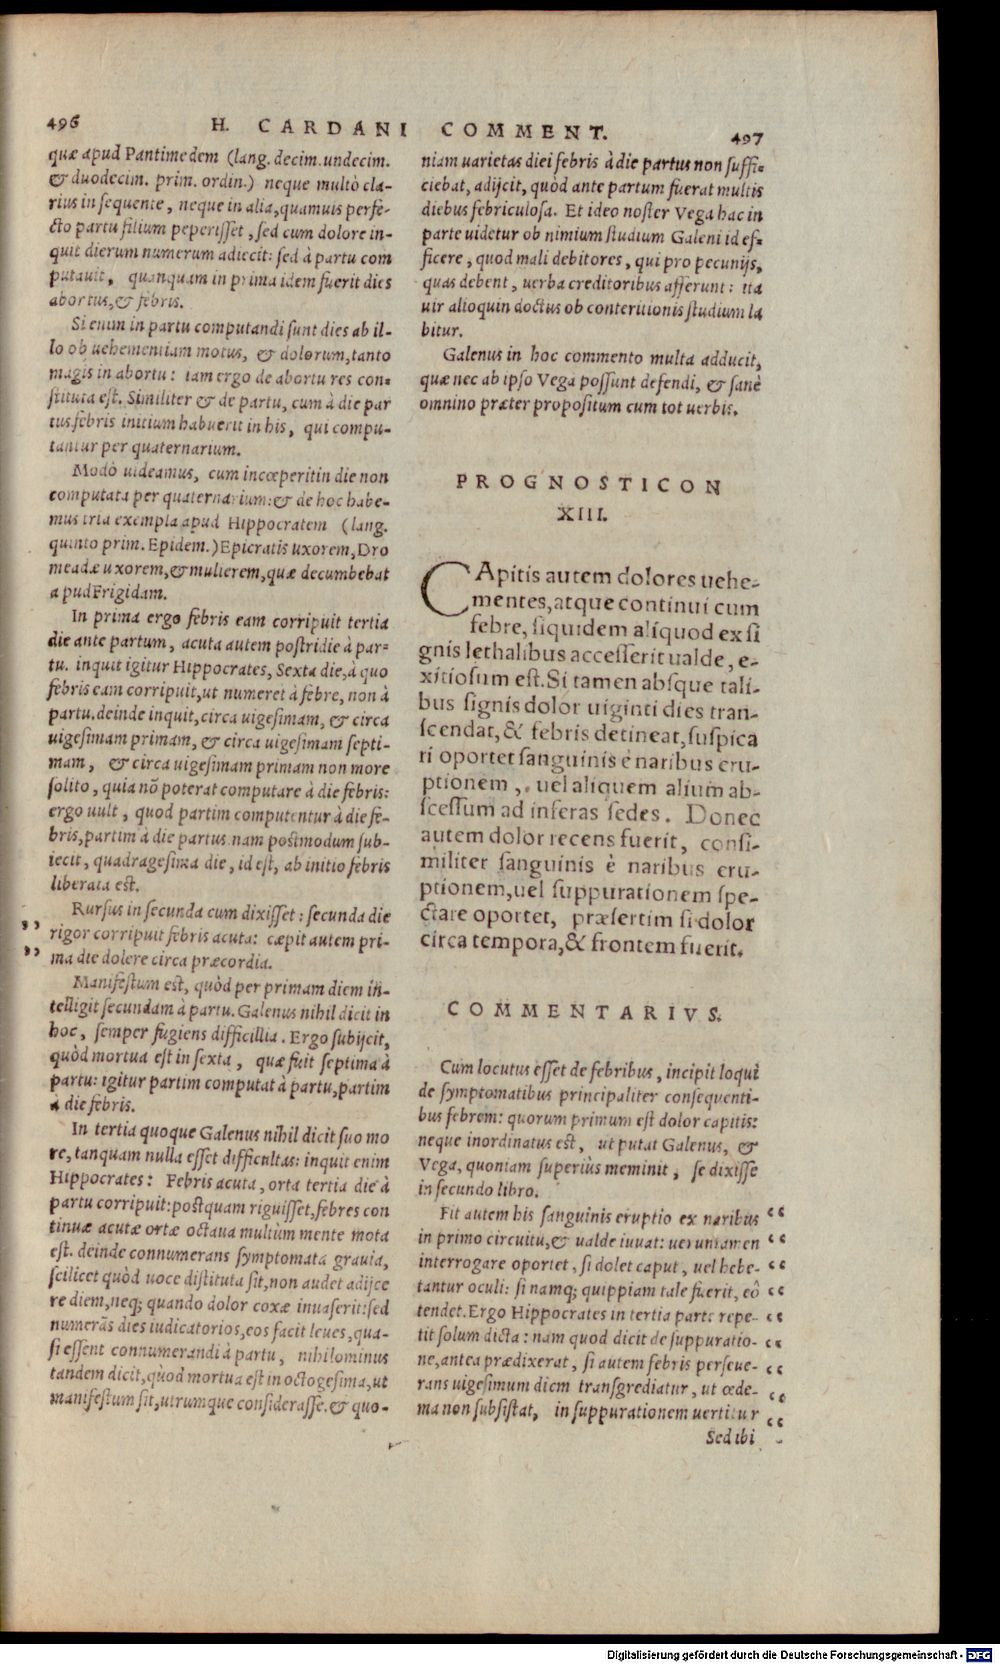 496
H. CARDANI COMMENT.
497
quæ apud Pantimedem (lang. decim. undecim.
& duodecim. prim. ordin.) neque multò cla-
rius in sequente, neque in alia, quamuis perfe-
cto partu filium peperisset, sed cum dolore in-
quit dierum numerum adiecit: sed à partu com
putauit, quanquam in prima idem fuerit dies
abortus, & febris.
Si enim in partu computandi sunt dies ab il-
lo ob uehementiam motus, & dolorum, tanto
magis in abortu: iam ergo de abortu res con-
stituta est. Similiter & de partu, cum à die par
tus febris initium habuerit in his, qui compu-
tantur per quaternarium.
Modò uideamus, cum incœperit in die non
computata per quaternarium: & de hoc habe-
mus tria exempla apud Hippocratem (lang.
quinto prim. Epidem.) Epicratis uxorem, Dro
meadæ uxorem, & mulierem, quæ decumbebat
apud Frigidam.
In prima ergo febris eam corripuit tertia
die ante partum, acuta autem postridie à par-
tu. inquit igitur Hippocrates, Sexta die, à quo
febris eam corripuit, ut numeret à febre, non à
partu. deinde inquit, circa uigesimam, & circa
uigesimam primam, & circa uigesimam septi-
mam, & circa uigesimam primam non more
solito, quia nõ poterat computare à die febris:
ergo uult, quod partim computentur à die fe-
bris, partim à die partus. nam postmodum sub-
iecit, quadragesima die, id est, ab initio febris
liberata est.
Rursus in secunda cum dixisset: secunda die
” rigor corripuit febris acuta: cæpit autem pri-
” ma die dolere circa præcordia.
Manifestum est, quòd per primam diem in-
telligit secundam à partu. Galenus nihil dicit in
hoc, semper fugiens difficillia. Ergo subijcit,
quòd mortua est in sexta, quæ fuit septima à
partu: igitur partim computat à partu, partim
à die febris.
In tertia quoque Galenus nihil dicit suo mo
re, tanquam nulla esset difficultas: inquit enim
Hippocrates: Febris acuta, orta tertia die à
partu corripuit: postquam riguisset, febres con
tinuæ acutæ ortæ octaua multùm mente mota
est. deinde connumerans symptomata grauia,
scilicet quòd uoce distituta sit, non audet adijce
re diem, neq; quando dolor coxæ inuaserit: sed
numerãs dies iudicatorios, eos facit leues, qua-
si essent connumerandi à partu, nihilominus
tandem dicit, quòd mortua est in octogesima, ut
manifestum sit, utrumque considerasse. & quo-
niam uarietas diei febris à die partus non suffi-
ciebat, adijcit, quòd ante partum fuerat multis
diebus febriculosa. Et ideo noster Vega hac in
parte uidetur ob nimium studium Galeni id ef-
ficere, quod mali debitores, qui pro pecunijs,
quas debent, uerba creditoribus afferunt: ita
uir alioquin doctus ob conteritionis studium la
bitur.
Galenus in hoc commento multa adducit,
quæ nec ab ipso Vega possunt defendi, & sanè
omnino præter propositum cum tot uerbis.
PROGNOSTICON
XIII.
CApitis autem dolores uehe-
mentes, atque continui cum
febre, siquidem aliquod ex si
gnis lethalibus accesserit ualde, e-
xitiosum est. Si tamen absque tali-
bus signis dolor uiginti dies tran-
scendat, & febris detineat, suspica
ri oportet sanguinis è naribus eru-
ptionem, uel aliquem alium ab-
scessum ad inferas sedes. Donec
autem dolor recens fuerit, consi-
militer sanguinis è naribus eru-
ptionem, uel suppurationem spe-
ctare oportet, præsertim si dolor
circa tempora, & frontem fuerit.
COMMENTARIVS.
Cum locutus esset de febribus, incipit loqui
de symptomatibus principaliter consequenti-
bus febrem: quorum primum est dolor capitis:
neque inordinatus est, ut putat Galenus, &
Vega, quoniam superiùs meminit, se dixisse
in secundo libro.
Fit autem his sanguinis eruptio ex naribus “
in primo circuitu, & ualde iuuat: ueruntamen “
interrogare oportet, si dolet caput, uel hebe- “
tantur oculi: si namq; quippiam tale fuerit, eò “
tendet. Ergo Hippocrates in tertia parte repe- “
tit solum dicta: nam quod dicit de suppuratio- “
ne, antea prædixerat, si autem febris perseue- “
rans uigesimum diem transgrediatur, ut œde- “
ma non subsistat, in suppurationem uertitur “
Sed ibi
Digitalisierung gefördert durch die Deutsche Forschungsgemeinschaft - DFG